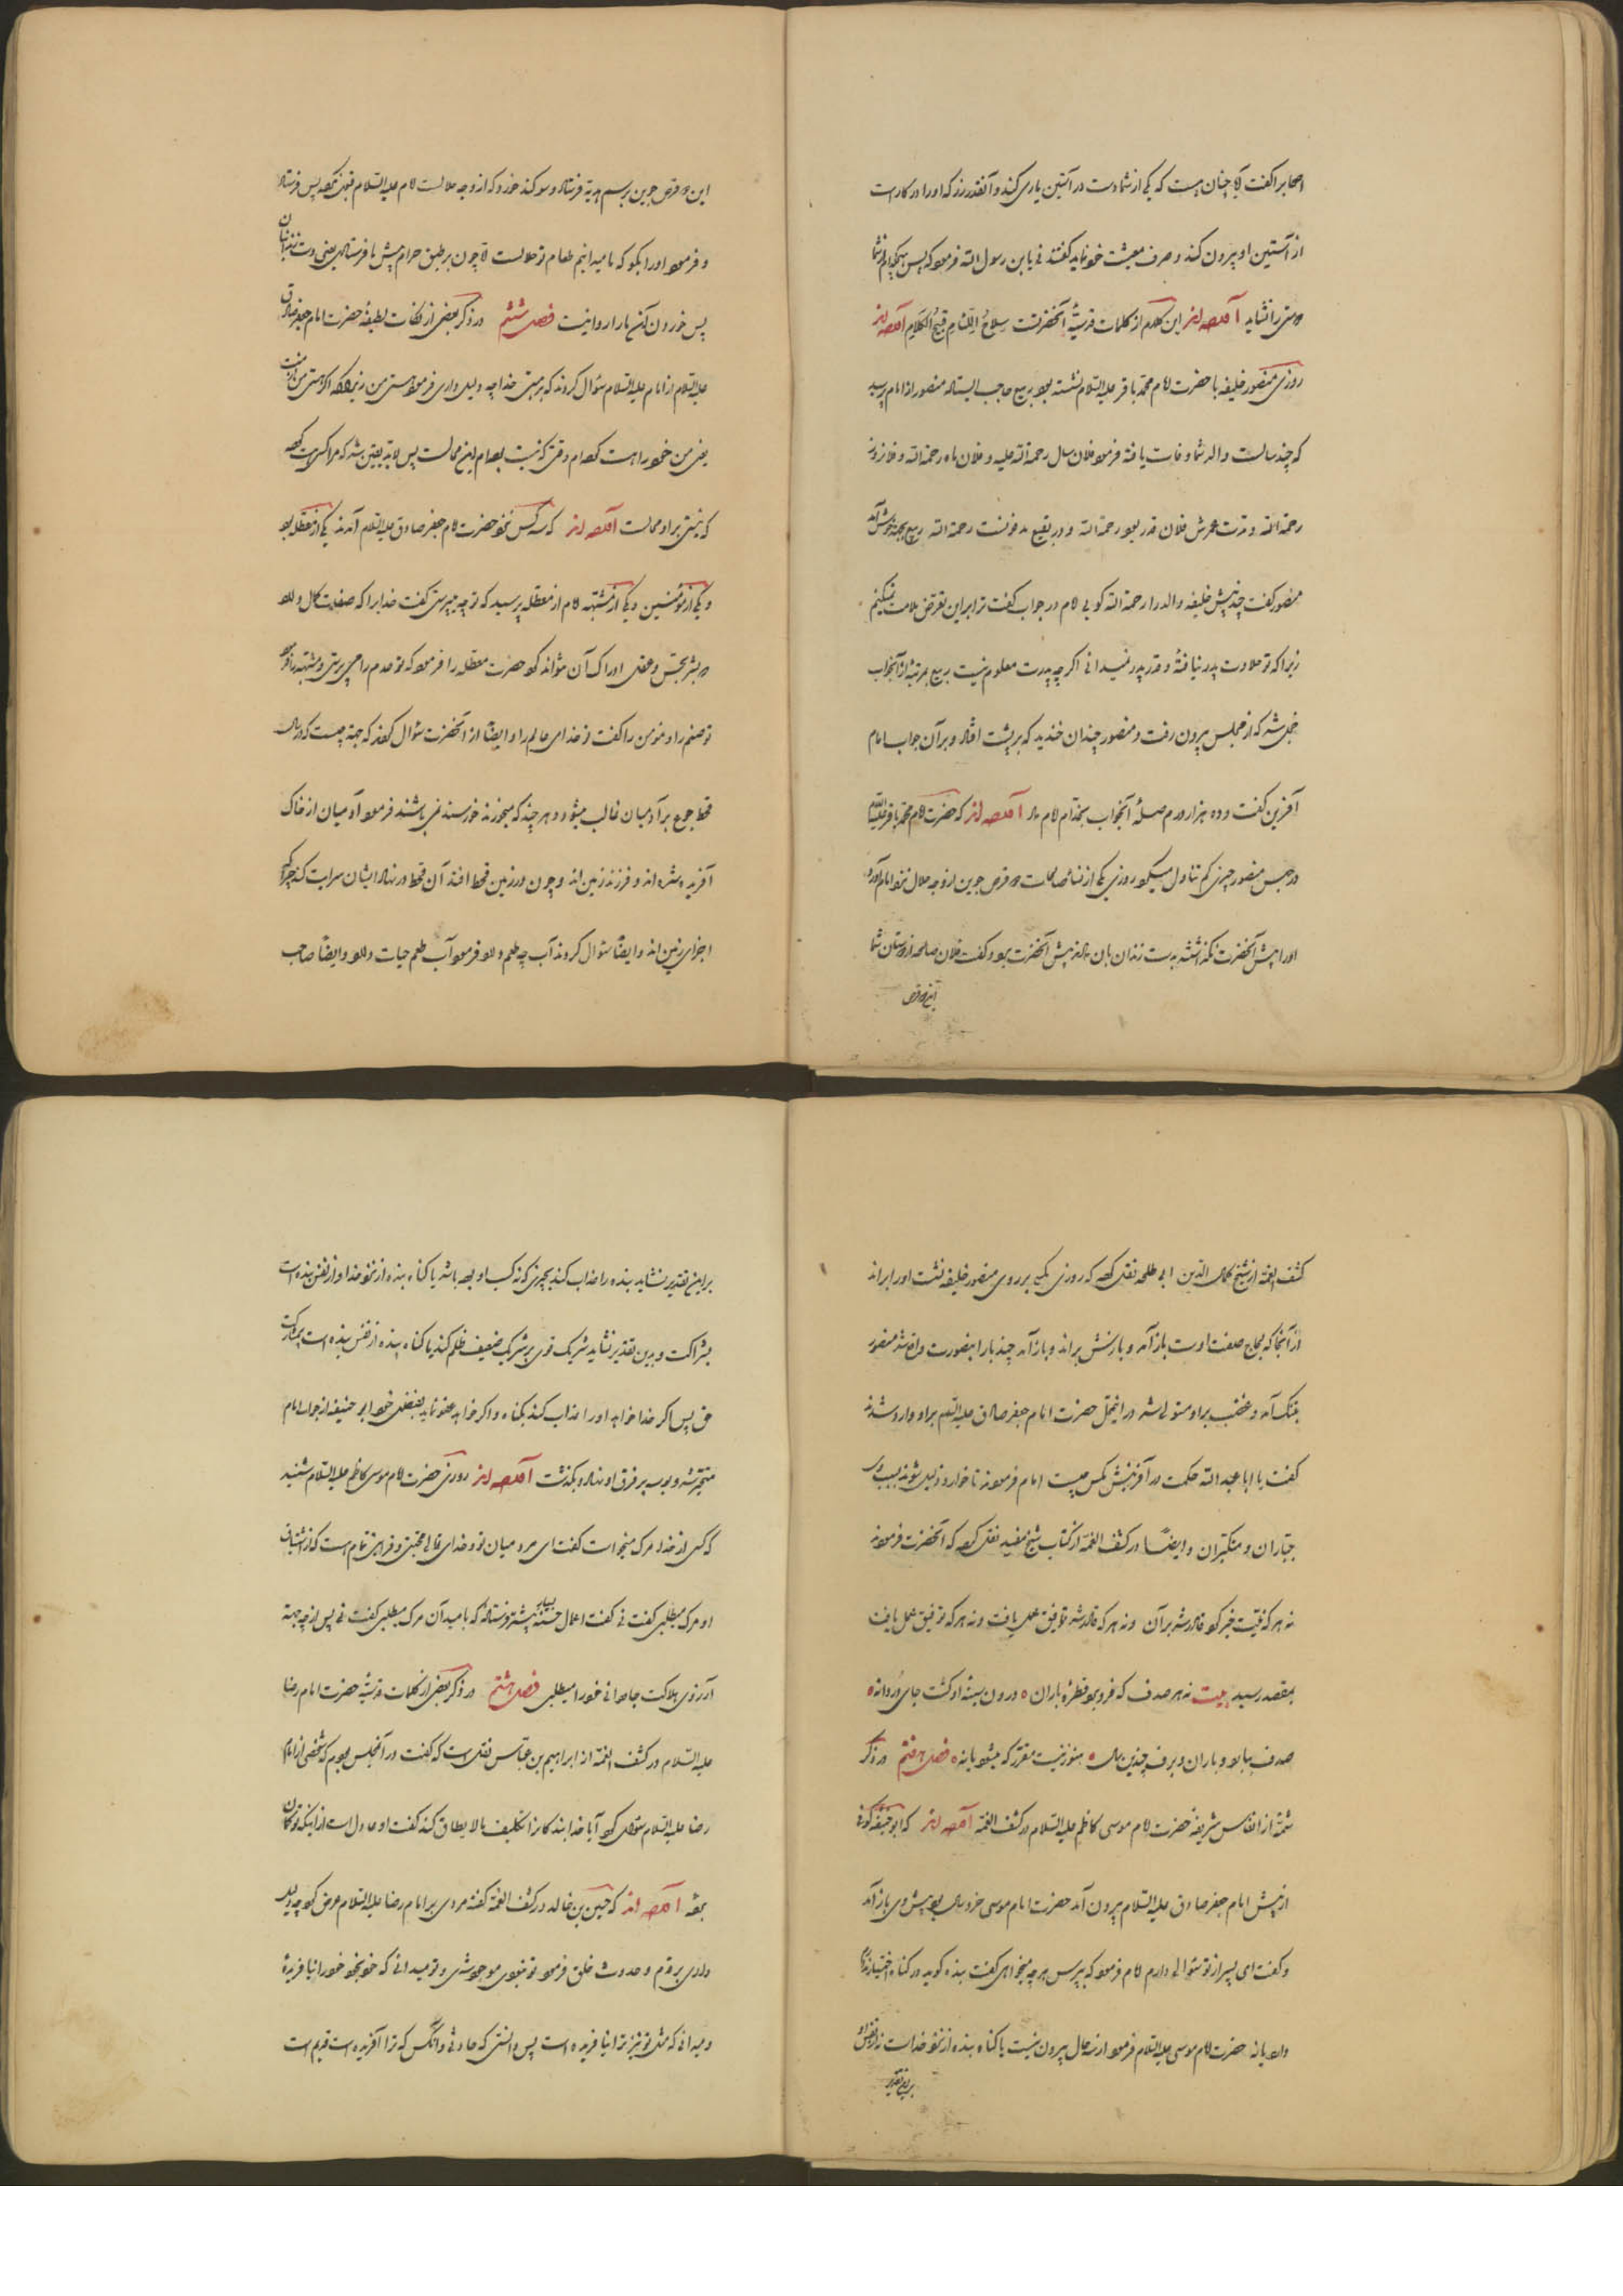 اصحابرا گفت آیا چنان هست که یکی از شما دست در آستین یاری کند و آنقدر زر که او را در کار است
از آستین او بیرون کند و صرف معیشت خود نماید گفتند نی یا بن رسول الله فرمود که پس هیچکدام از شما
دوستی را نشاید آورده اند این کلام از کلمات قدسیهٔ آنحضرتست سلاح اللئام قبیح الکلام آورده اند
روزی منصور خلیفه با حضرت امام محمد باقر علیه السلام نشسته بود ربیع حاجب ایستاده منصور از امام پرسید
که چند سالست والد شما وفات یافته فرمود فلان سال رحمة الله علیه و فلان ماه رحمة الله و فلان روز
رحمة الله و مدت عمرش فلان قدر بود رحمة الله و در بقیع مدفونست رحمة الله ربیع بجهة خوش آمد
منصور گفت چند پیش خلیفه والد را رحمة الله گویی امام در جواب گفت ترا بر این تعرض ملامت نمیکنیم
زیرا که تو حلاوت پدر نیافتهٔ و قدر پدر نمیدانی اگر چه پدرت معلوم نیست ربیع بمرتبهٔ از آنجواب
خجل شد که از مجلس بیرون رفت و منصور چندان خندید که بر پشت افتاد و بر آن جواب امام
آفرین گفت و ده هزار درم صلهٔ آنجواب بخدام امام داد آورده اند که حضرت امام محمد باقر علیه السلام
در حبس منصور چیزی کم تناول میکرد روزی یکی از نساء صالحات دو قرص جوین از وجه حلال نزد امام آورد
او را پیش آنحضرت نگذاشتند بدست زندان بان داد پیش آنحضرت برد و گفت فلان صالحه از دوستان شما
این دو قرص
این دو قرص جوین برسم هدیة فرستاده و سوگند خورد که از وجه حلالست امام علیه السلام قبول نکرد پس فرستاد
و فرمود او را بگو که ما میدانیم طعام تو حلالست اما چون بر طبق حرام پیش ما فرستادی یعنی دست زندانبان
پس خوردن آن ما را روا نیست فصل ششم در ذکر بعضی از نکات لطیفهٔ حضرت امام جعفر صادق
علیه السلام از امام علیه السلام سؤال کردند که بر هستی خدا چه دلیل داری فرمود هستی من زیرا که اگر هستی من از منست
یعنی من خود را هست کرده ام وقتی که نیست بوده ام این محالست پس لابد یقین شد که مرا کسی هست کرده
که نیستی بر او محالست آورده اند که سه کس نزد حضرت امام جعفر صادق علیه السلام آمدند یکی از معطله بود
و یکی از مؤمنین و یکی از مشبهه امام از معطله پرسید که تو چه میپرستی گفت خدایرا که صفات کمال دارد
و بشر بحس و عقل ادراک آن نتواند کرد حضرت معطله را فرمود که تو عدم را می پرستی و مشبهه را فرمود
تو صنم را و مؤمن را گفت تو خدای عالم را و ایضا از آنحضرت سؤال کردند که جهة چیست که در سال
قحط جوع بر آدمیان غالب میشود و هر چند که میخورند خورسند نمی باشند فرمود آدمیان از خاک
آفریده شده اند و فرزند زمین اند و چون در زمین قحط افتد آن قحط در نهاد ایشان سرایت کند چرا که
اجزای زمین اند و ایضا سؤال کردند آب چه طعم دارد فرمود آب طعم حیات دارد و ایضا صاحب
کشف الغمه از شیخ کمال الدین ابی طلحه نقل کرده که روزی مگسی بر روی منصور خلیفه نشست او را براند
از آنجا که لجاج صفت اوست باز آمد و بازش براند و باز آمد چند بار اینصورت واقع شد منصور
بتنگ آمد و غضب بر او مستولی شد در اینمحل حضرت امام جعفر صادق علیه السلام بر او وارد شدند
گفت یا ابا عبد الله حکمت در آفرینش مگس چیست امام فرمودند تا خوار و ذلیل شوند بسبب وی
جباران و متکبران و ایضا در کشف الغمه از کتاب شیخ مفید نقل کرده که آنحضرت فرمودند
نه هر که نیت خیر کرد قادر شد بر آن و نه هر که قادر شد توفیق عمل یافت و نه هر که توفیق عمل یافت
بمقصد رسید بیت نه هر صدف که فرو برد قطرهٔ باران درون سینهٔ او گشت جای دردانه
صدف بباید و باران و برف چندین سال هنوز نیست مقرر که میشود یا نه فصل هفتم در ذکر
شمهٔ از انفاس شریفهٔ حضرت امام موسی کاظم علیه السلام در کشف الغمه آورده اند که ابو حنیفهٔ کوفی
از پیش امام جعفر صادق علیه السلام بیرون آمد حضرت امام موسی خرد سال بود پیش وی باز آمد
و گفت ای پسر از تو سئوالی دارم امام فرمود که بپرس هر چه میخواهی گفت بنده گوید در گناه اختیار
دارد یا نه حضرت امام موسی علیه السلام فرمود از سه حال بیرون نیست یا گناه بنده از نزد خداست نه از نفس او
بر این تقدیر
بر این تقدیر نشاید بنده را عذاب کند بچیزی که نه کسب او بوده باشد یا گناه بنده از نزد خدا و از نفس بنده است
بشراکت و بدین تقدیر نشاید شریک قوی بر شریک ضعیف ظلم کند یا گناه بنده از نفس بنده است بی مشارکت
حق پس اگر خدا خواهد او را عذاب کند بگناه و اگر خواهد عفو نماید بفضل خود ابو حنیفه از جواب امام
متحیر شد و بوسه بر فرق او نهاد و بگذشت آورده اند روزی حضرت امام موسی کاظم علیه السلام شنید
که کسی از خدا مرگ میخواست گفت ای مرد میان تو و خدای تعالی محبتی و قرابتی تمام است که از اشتیاق
او مرگ میطلبی گفت نی گفت اعمال حسنه بسیار پیشتر فرستادهٔ که بامید آن مرگ میطلبی گفت نی پس از چه جهة
آرزوی هلاکت جاودانی خود را میطلبی فصل هشتم در ذکر بعضی از کلمات قدسیهٔ حضرت امام رضا
علیه السلام در کشف الغمه از ابراهیم بن عباس نقل است که گفت در آنمجلس بودم که شخصی از امام
رضا علیه السلام سؤال کرد آیا خدا بندگانرا تکلیف ما لا یطاق کند گفت او عادل است از اینکه تواند
بود آورده اند که حسین بن خالد در کشف الغمه گفته مردی بر امام رضا علیه السلام عرض کرد چه دلیل
داری بر قدم و حدوث خلق فرمود تو نبودی موجود شدی و تو میدانی که خود بخود خود را نیافریدهٔ
و میدانی که مثل تو نیز ترا نیافریده است پس دانستی که حادثی و آنکس که ترا آفریده است قدیم است